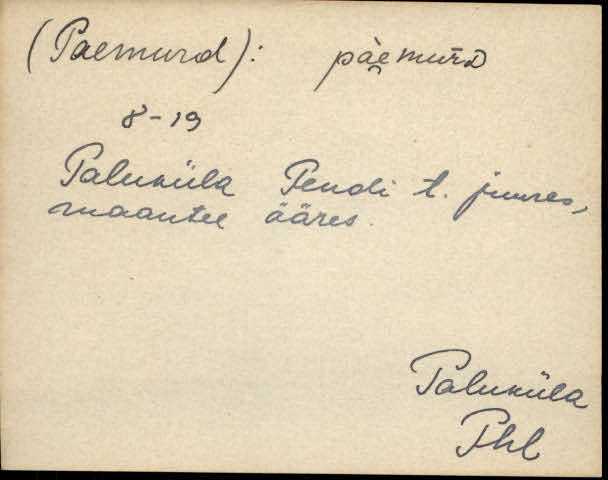 (Paemurd): pàe̯murᴅ
8-19
Paluküla Pendi t. juures,
maantee ääres.
Paluküla
Phl